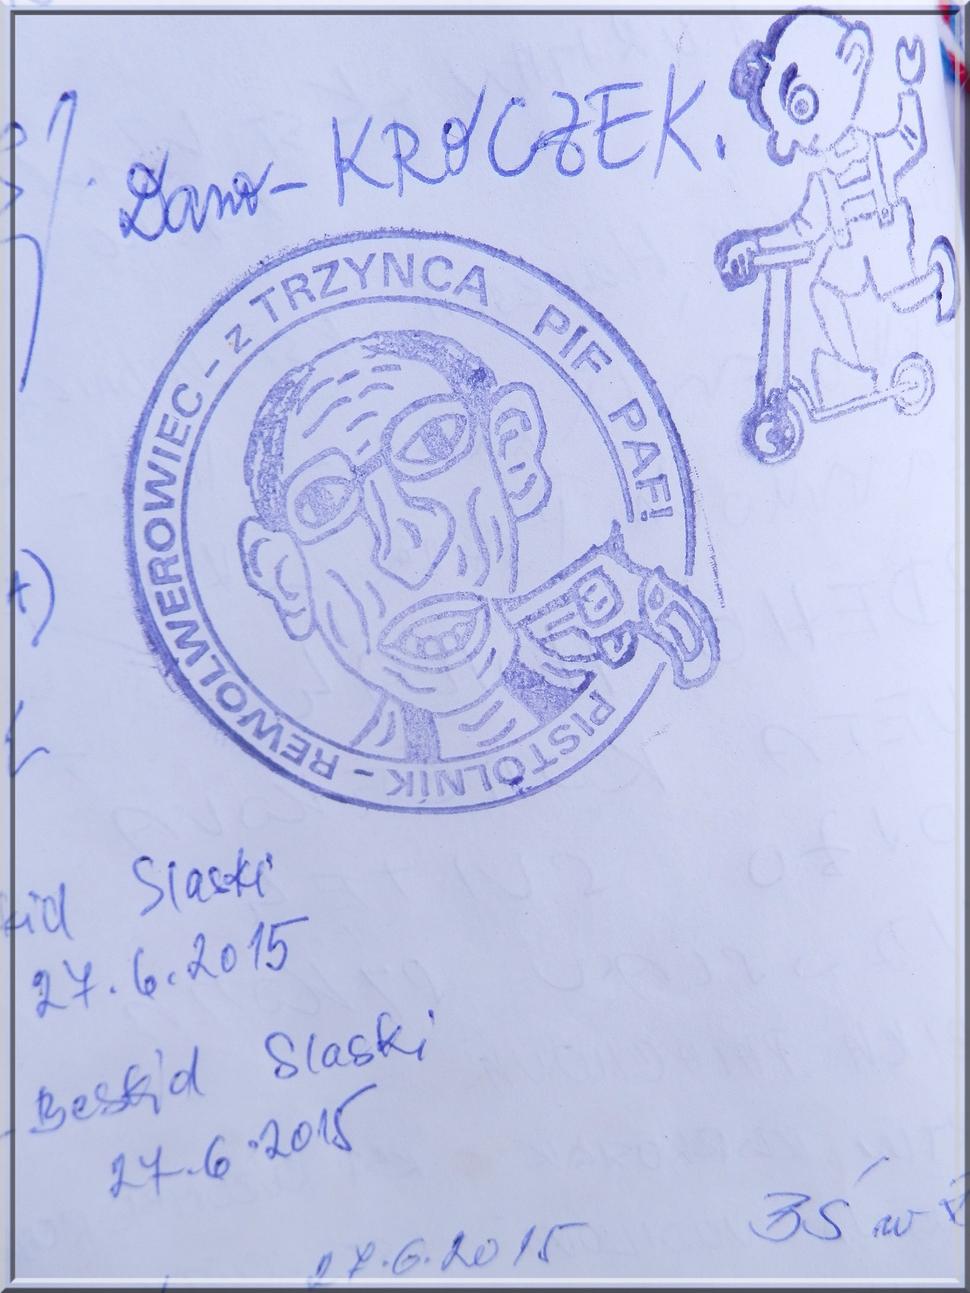 Dano - KROCZEK.
PISTOLNÍK - REWOLWEROWIEC - z TRZYNCA PIF PAF!
Slaski
27.6.2015
Beskid Slaski
27.6.2015
27.6.2015
BŚ w